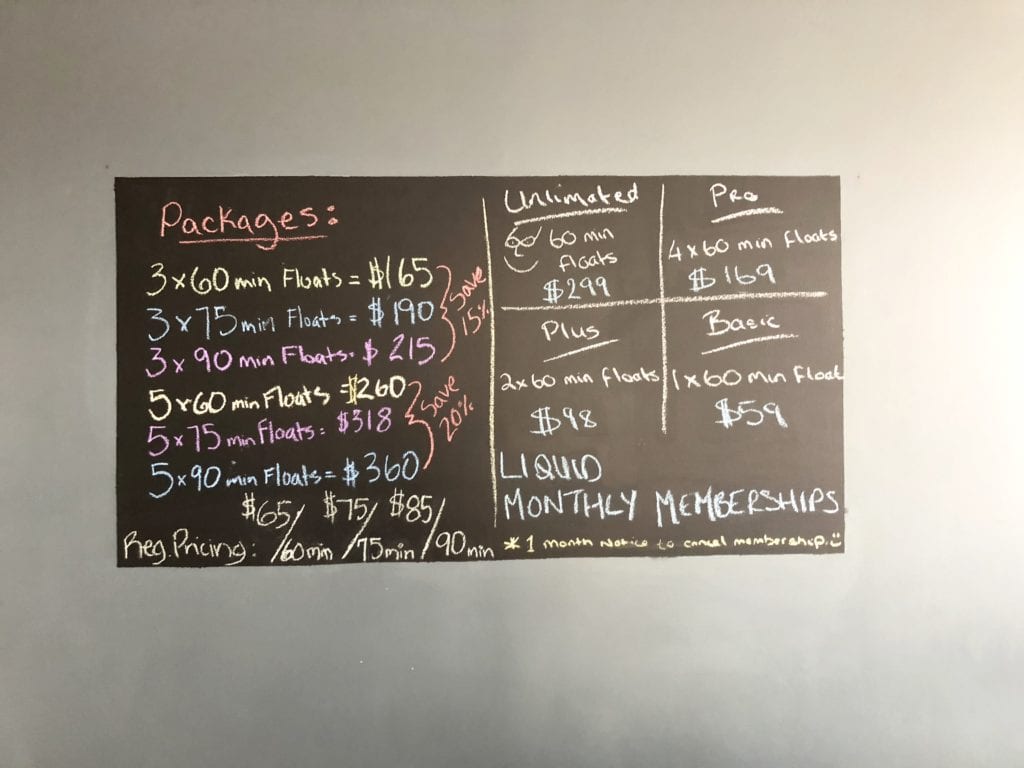 Packages:
3 x 60 min Floats = $165
3 x 75 min Floats = $190
3 x 90 min Floats = $215
Save
15%
5 x 60 min Floats = $260
5 x 75 min Floats = $318
5 x 90 min Floats = $360
Save
20%
$65/ $75/ $85/
Reg. Pricing: /60 min /75 min /90 min
Unlimated
60 min
floats
$299
Pro
4 x 60 min floats
$169
Plus
2 x 60 min floats
$98
Basic
1 x 60 min float
$59
LIQUID
MONTHLY MEMBERSHIPS
* 1 month notice to cancel membership.